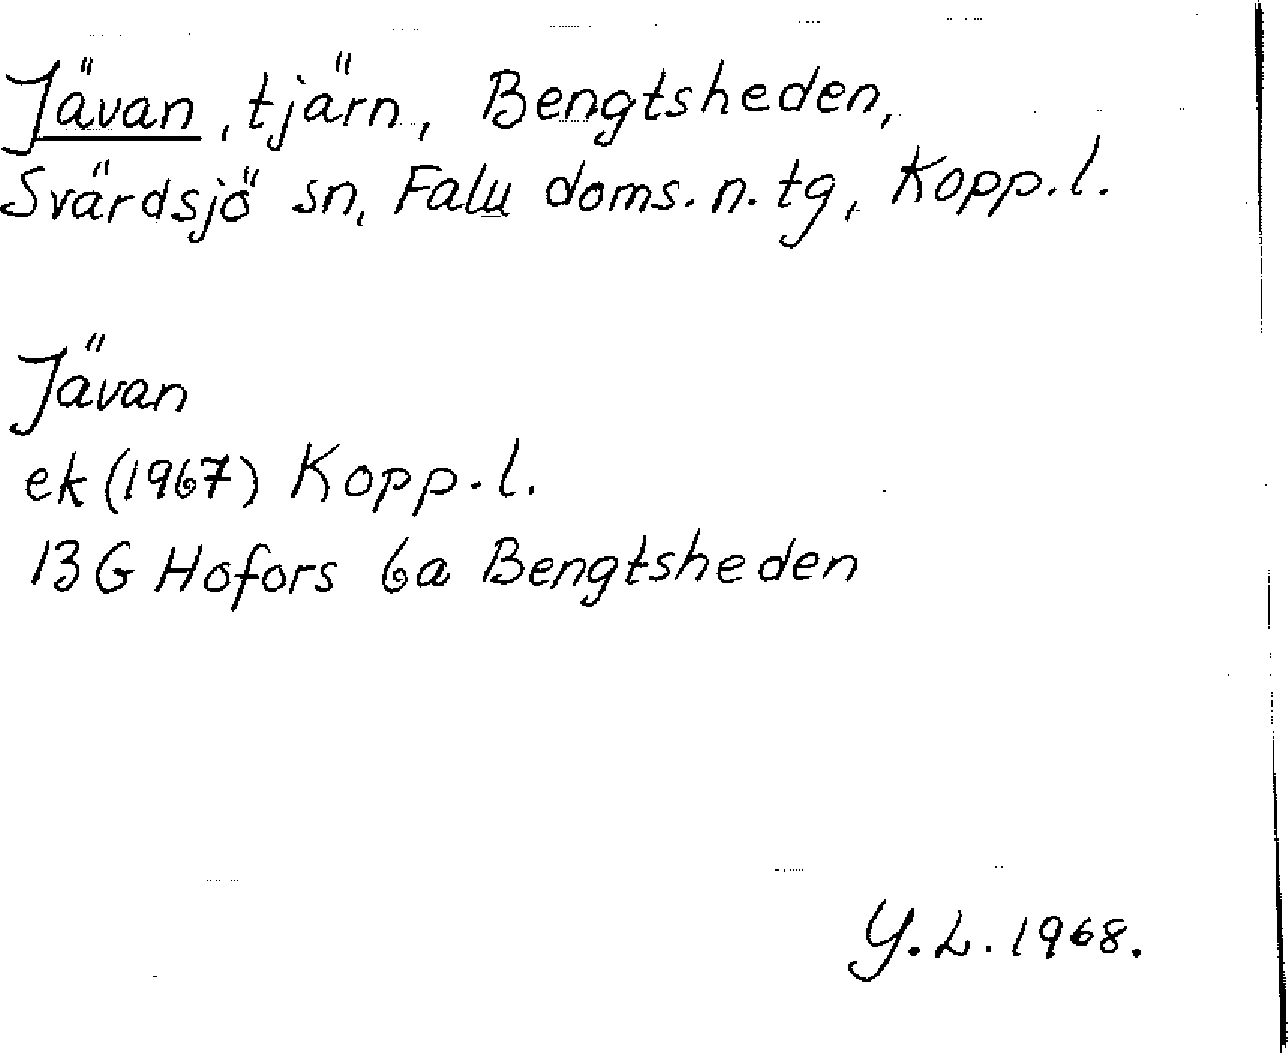 Jävan, tjärn, Bengtsheden,
Svärdsjö sn, Falu doms. n. tg, Kopp. l.
Jävan
ek (1967) Kopp. l.
13G Hofors 6a Bengtsheden
Y. L. 1968.